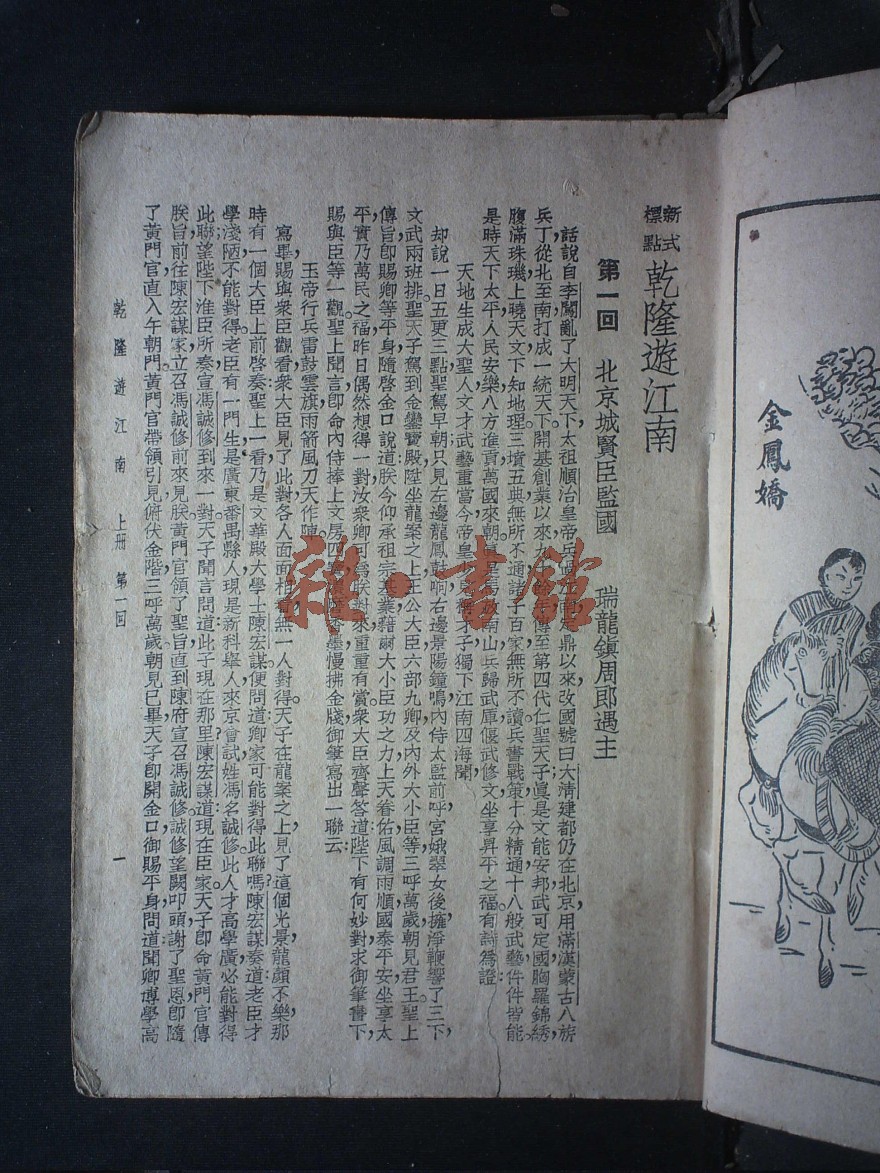 金鳳嬌
新式標點 乾隆遊江南
第一回 北京城賢臣監國 瑞龍鎮周郎遇主
話說自李闖亂了大明天下,太祖順治皇帝兵過江南,定鼎以來,改國號曰大清,建都仍在北京,用滿漢蒙古八旂
兵丁,從北至南,打成一統天下。開基創業以來,九十傳至第四代仁聖天子,眞是文能安邦,武可定國,胸羅錦綉,
腹滿珠璣,上曉天文,下知地理,三墳五典,無所不通,諸子百家,無所不讀,兵書戰策,十分精通,十八般武藝,件件皆能。
是時天下太平,人民安樂,八方進貢,萬國來朝。南山,兵歸武庫,偃武修文,坐享昇平之福。有詩爲證:
天地生成大聖人,文才武藝重當今。帝皇才子,獨下江南四海聞。
却說一日五更三點,聖駕早朝,只見左邊龍鳳鼓响,右邊景陽鐘鳴,內侍太監前呼,宮娥翠女後擁,淨鞭響了三下,
文武兩班排,聖天子駕到金鑾寶殿,陞坐龍案之上。王公大臣六部九卿及內外大小臣等,三呼萬歲,朝見君王。聖上
傳旨,卽賜卿等平身,隨啓金口說道:朕今仰承祖宗基業,藉爾大小臣功之力,上天眷佑,風調雨順,國泰平安,坐享太
平,實乃萬民之福。昨日偶然想得一對,汝衆卿可爲朕對來,重重有賞。衆大臣齊聲答道:陛下有何妙對,求御筆書下,
賜與臣等一觀。聖上聞言,卽命內侍捧上文房四寶,墨慢拂金牋,御筆寫出一聯云:
玉帝行兵,雷鼓雲旗,雨箭風刀天作陣
寫畢,賜與衆臣觀看。衆大臣見了此對,各人面面相,無一人對得。天子在龍案之上,見了這個光景,龍顏不樂。那
時有一個大臣上前啓奏,聖上一看,乃是文華殿大學士陳宏謀,便問道:卿家可能對得此聯嗎?陳宏謀奏道:老臣才
學淺陋,不能對得。老臣有一門生,是廣東番禺縣人,現是新科舉人,來京會試,姓馮名誠修。此人才高學廣,必能對得
此聯,望陛下准臣所奏,宣馮誠修到來一對。天子聞言,問道:此子現在那里?陳宏謀道:現在臣家。天子卽命黃門官傳
朕旨,前往陳宏謀家,立召馮誠修前來見朕。黃門官領了聖旨,直到陳府,宣召馮誠修。誠修望闕叩頭,謝了聖恩,卽隨
了黃門官,直入午朝門。黃門官帶領引見,俯伏金階,三呼萬歲,朝見已畢。天子卽開金口,御賜平身,問道:聞卿博學高
乾隆遊江南 上册 第一回
一
雜·書館